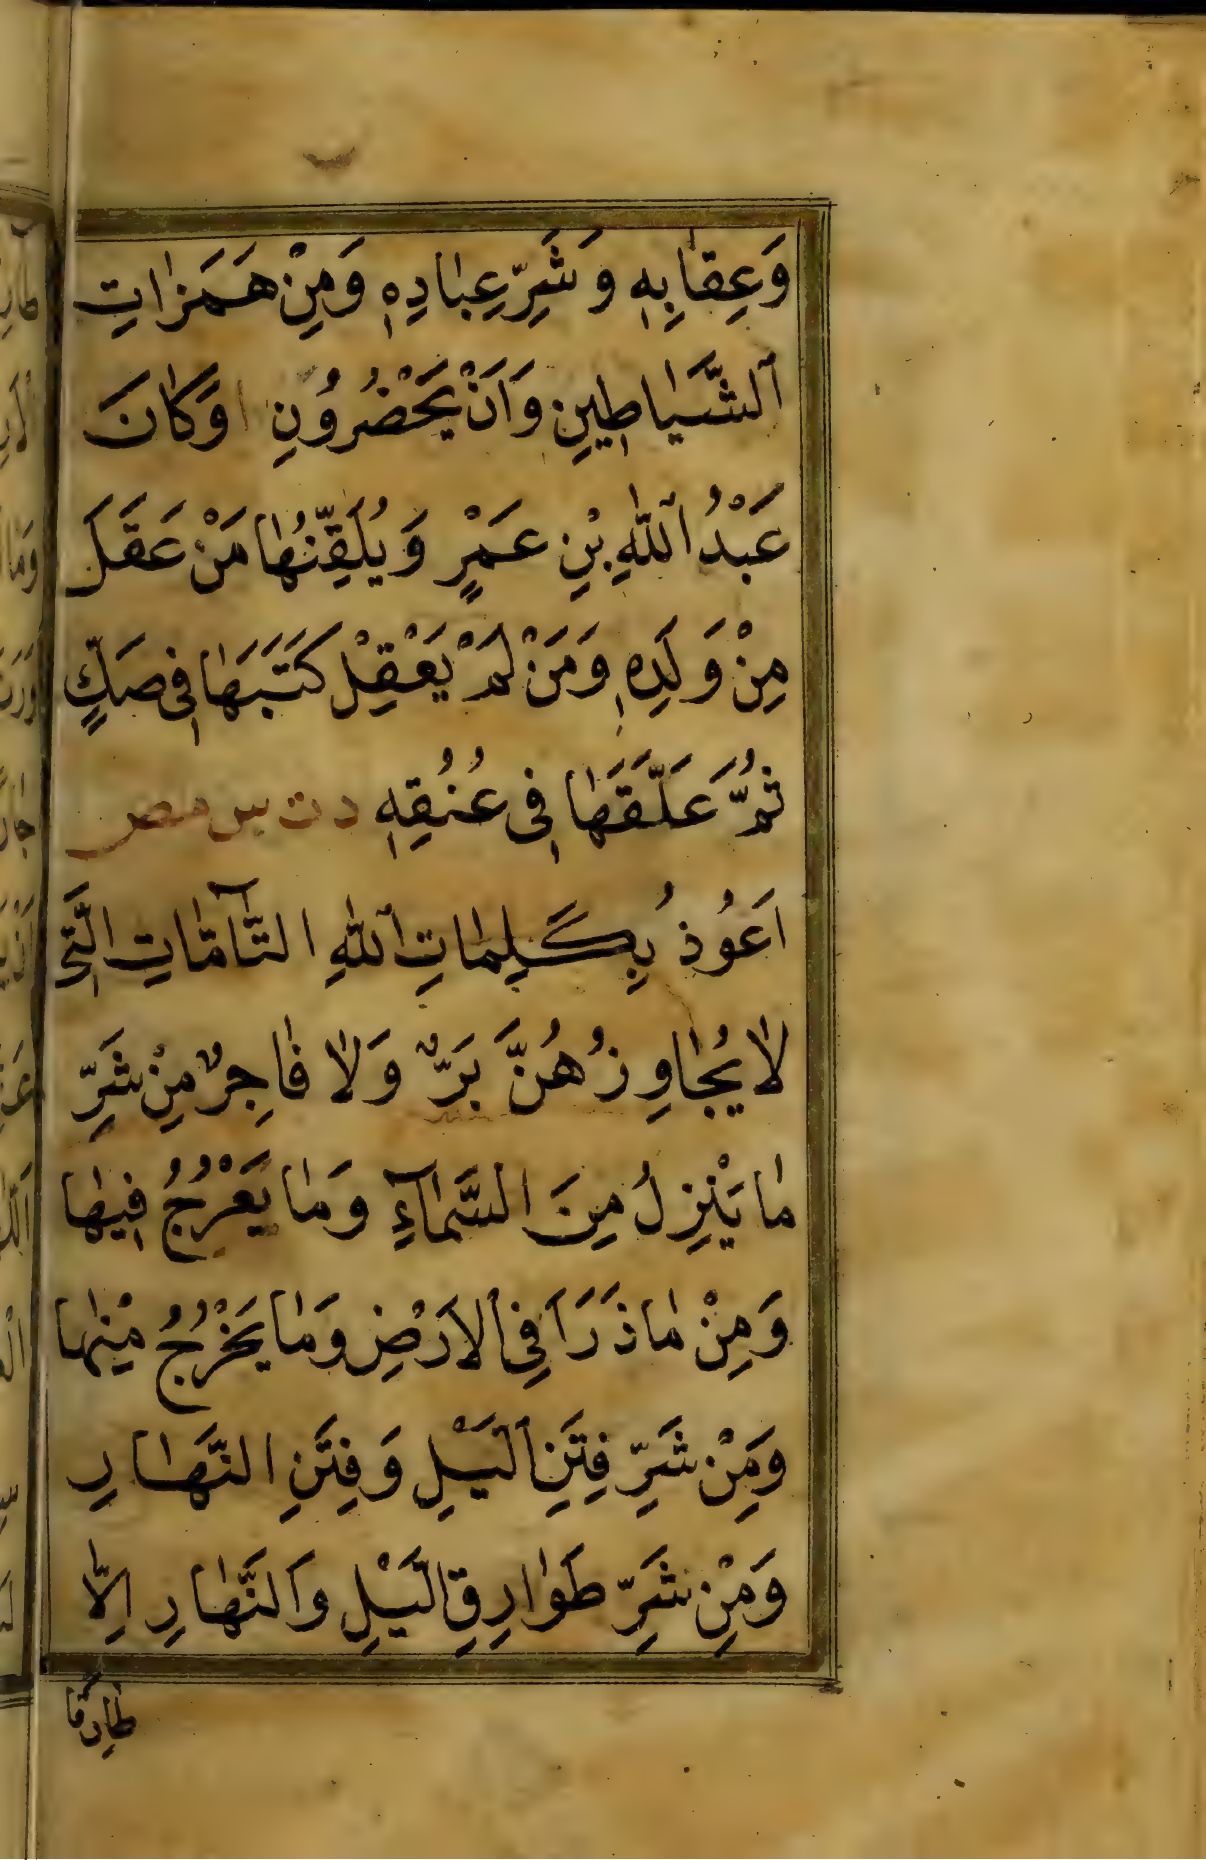 وَعِقَابِهِ وَشَرِّ عِبَادِهِ وَمِنْ هَمَزَاتِ
الشَّيَاطِينِ وَاَنْ يَحْضُرُونِ وَكَانَ
عَبْدُ اللّٰهِ بْنِ عَمْرٍ وَيُلَقِّنُهَا مَنْ عَقَلَ
مِنْ وَلَدِهِ وَمَنْ لَمْ يَعْقِلْ كَتَبَهَا فِى صَكٍّ
ثُمَّ عَلَّقَهَا فِى عُنُقِهِ د ت س مص
اَعُوذُ بِكَلِمَاتِ اللّٰهِ التَّآمَّاتِ الَّتِى
لَا يُجَاوِزُهُنَّ بَرٌّ وَلَا فَاجِرٌ مِنْ شَرِّ
مَا يَنْزِلُ مِنَ السَّمَآءِ وَمَا يَعْرُجُ فِيهَا
وَمِنْ مَا ذَرَاَ فِى الْاَرْضِ وَمَا يَخْرُجُ مِنْهَا
وَمِنْ شَرِّ فِتَنِ الَّيْلِ وَفِتَنِ النَّهَارِ
وَمِنْ شَرِّ طَوَارِقِ الَّيْلِ وَالنَّهَارِ اِلَّا
طَارِقًا